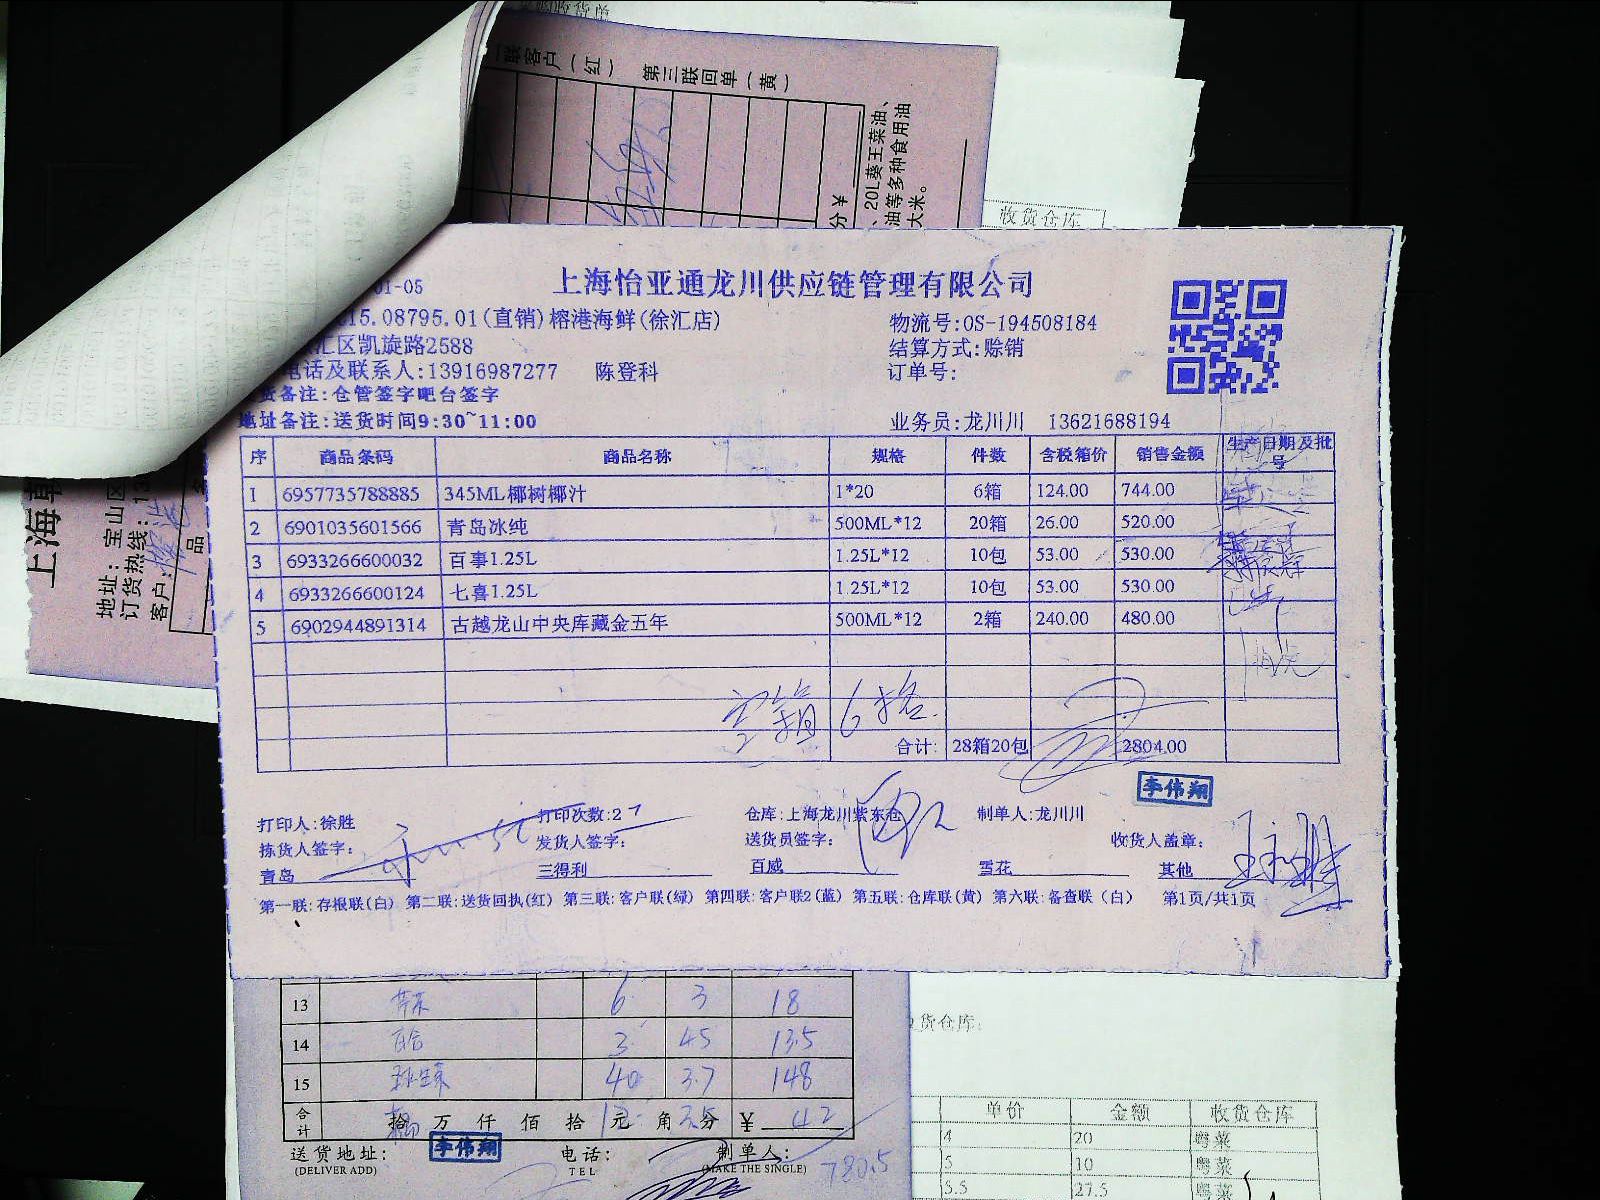 联客户(红) 第三联回单(黄)
、20L葵王菜油、
油等多种食用油
大米。
分¥
收货仓库
01-05
上海怡亚通龙川供应链管理有限公司
15.08795.01(直销)榕港海鲜(徐汇店)
物流号:OS-194508184
汇区凯旋路2588
结算方式:赊销
电话及联系人:13916987277 陈登科
订单号:
货备注:仓管签字吧台签字
地址备注:送货时间9:30~11:00
业务员:龙川川 13621688194
序 商品条码 商品名称 规格 件数 含税箱价 销售金额 生产日期及批号
1 6957735788885 345ML椰树椰汁 1*20 6箱 124.00 744.00
2 6901035601566 青岛冰纯 500ML*12 20箱 26.00 520.00
3 6933266600032 百事1.25L 1.25L*12 10包 53.00 530.00
4 6933266600124 七喜1.25L 1.25L*12 10包 53.00 530.00
5 6902944891314 古越龙山中央库藏金五年 500ML*12 2箱 240.00 480.00
合计: 28箱20包 2804.00
李伟翔
打印人:徐胜 打印次数:2 仓库:上海龙川紫东仓 制单人:龙川川
拣货人签字: 发货人签字: 送货员签字: 收货人盖章:
青岛 三得利 百威 雪花 其他
第一联:存根联(白) 第二联:送货回执(红) 第三联:客户联(绿) 第四联:客户联2(蓝) 第五联:仓库联(黄) 第六联:备查联(白) 第1页/共1页
上海
地址:宝山区
订货热线:13
客户:
品
13 6 3 18
14 百合 3 45 13.5
15 40 3.7 148
合计 拾 万 仟 佰 拾 元 角 分 ¥ 42
送货地址: 李伟翔 电话: 制单人:
(DELIVER ADD) TEL (MAKE THE SINGLE) 780.5
货仓库:
单价 金额 收货仓库
4 20 粤菜
5 10 粤菜
5.5 27.5 粤菜